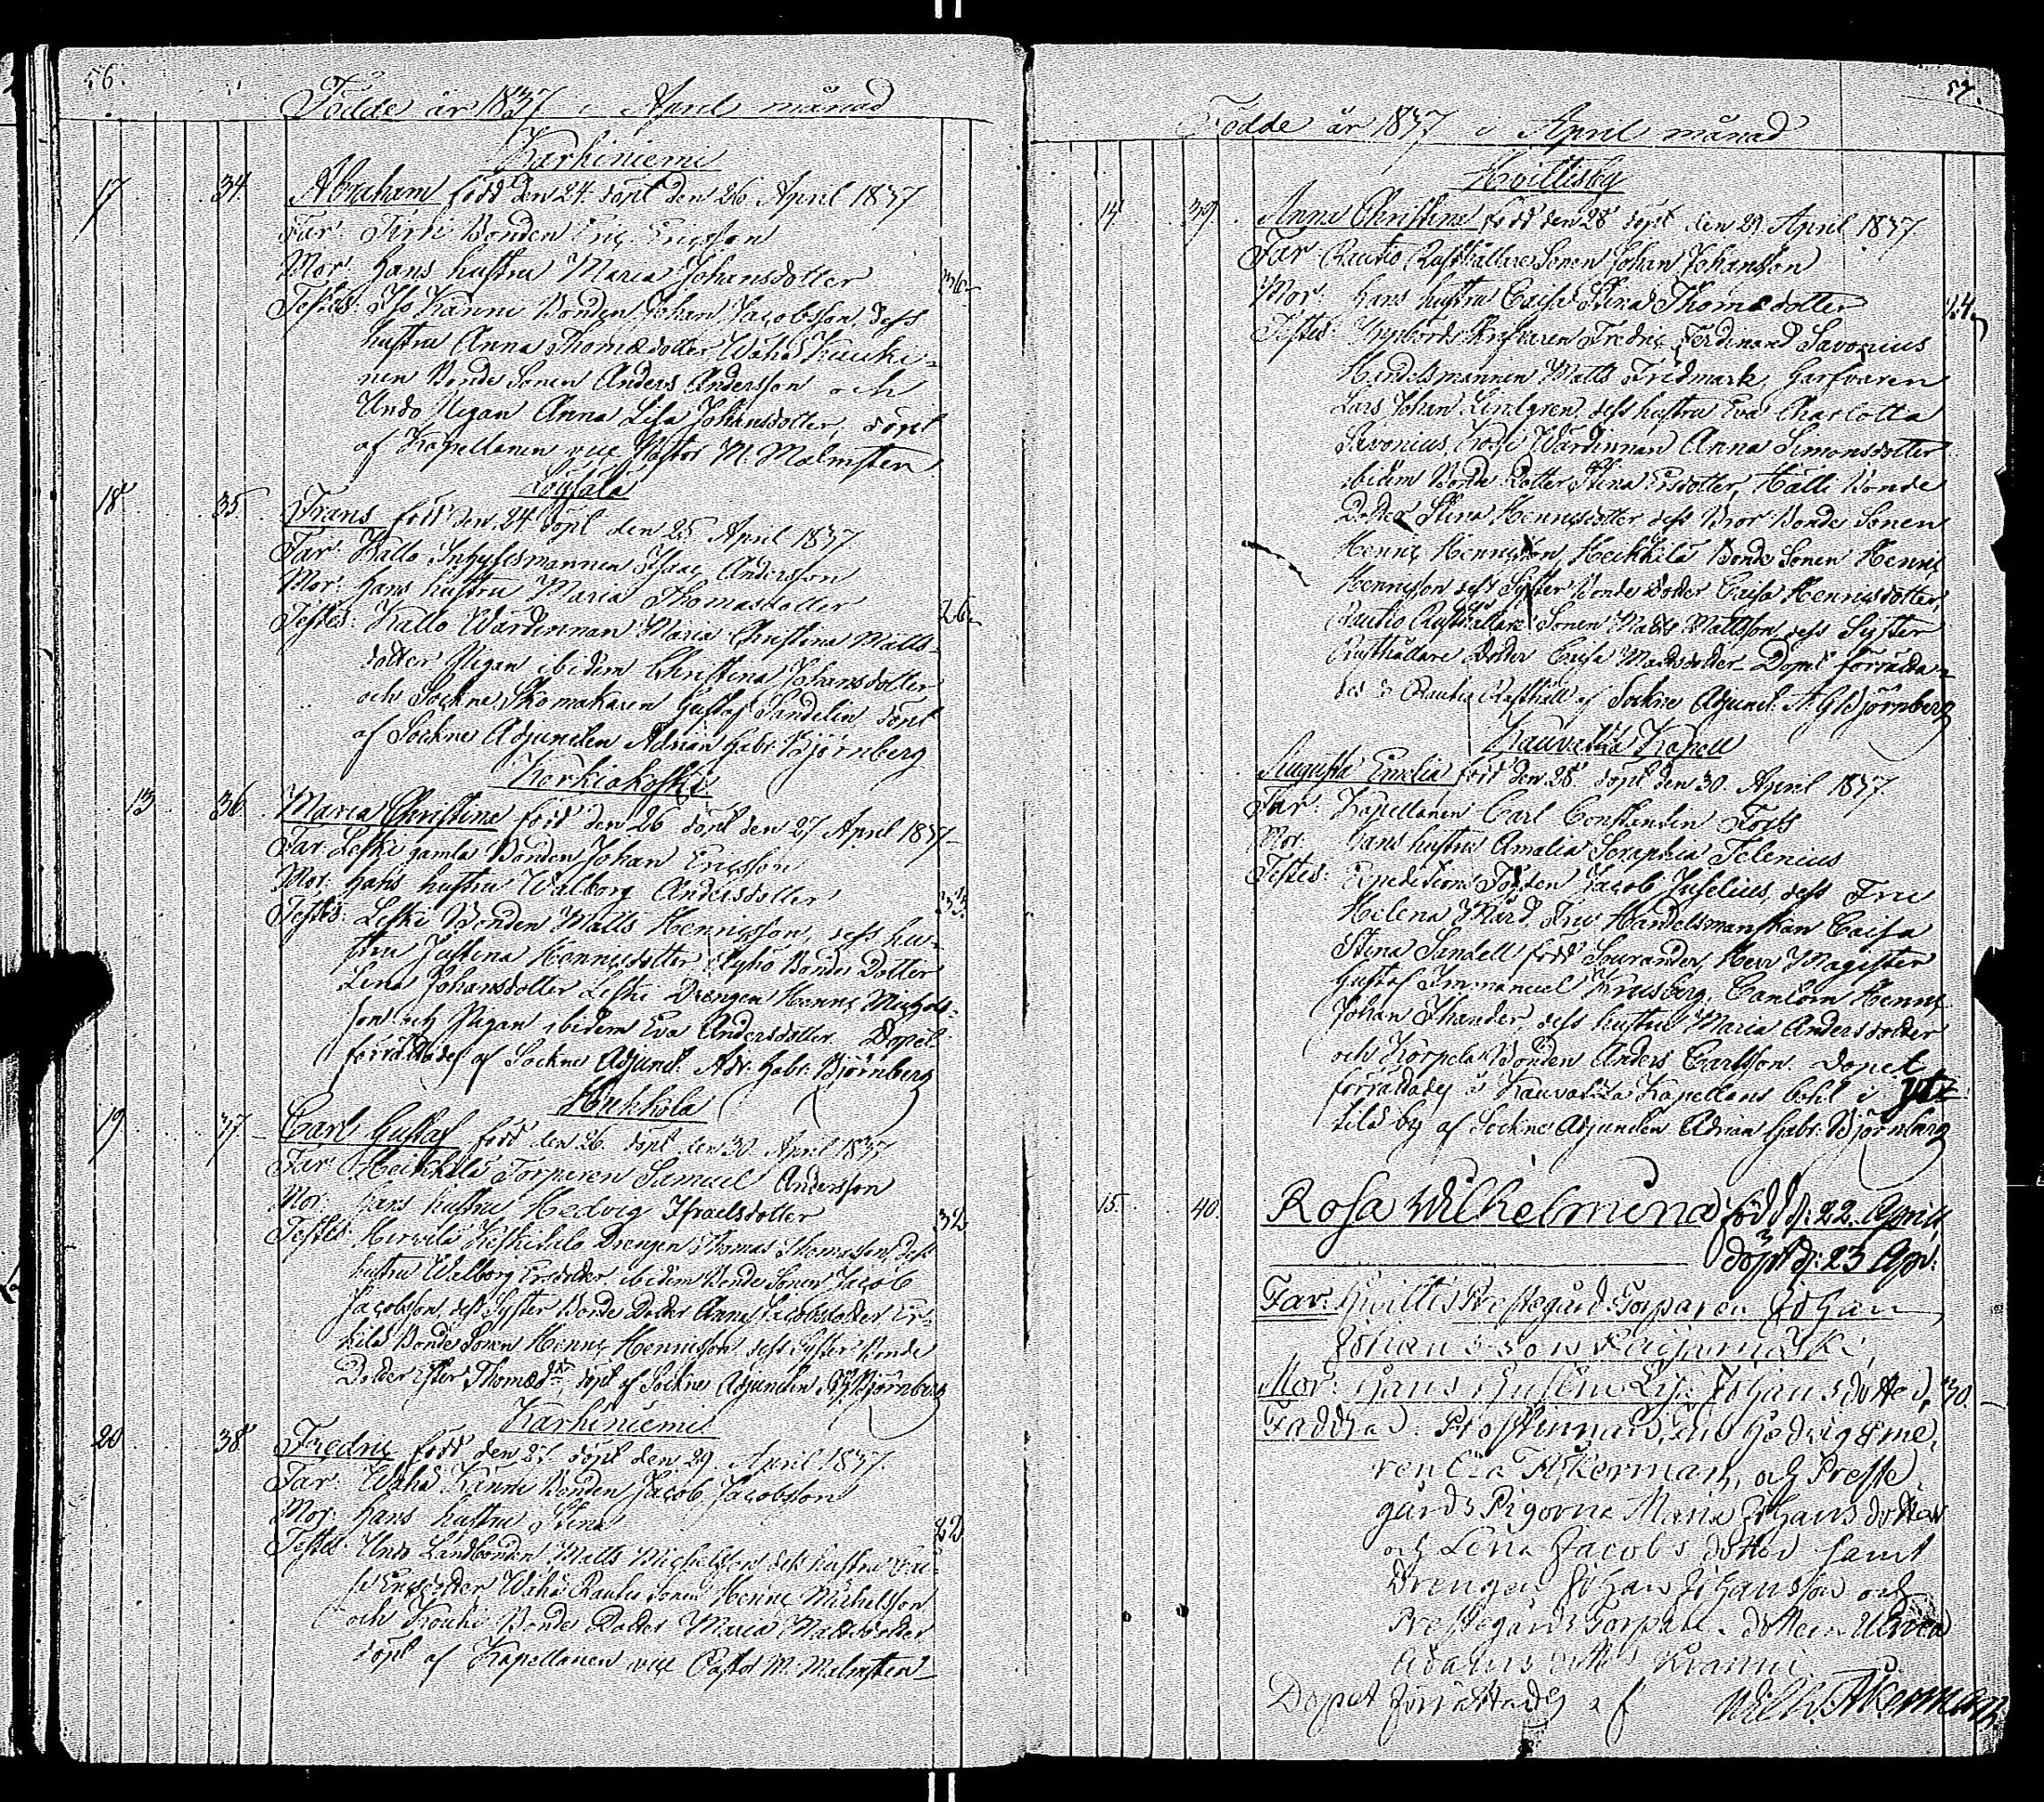 56.
Födde år 1837 i April månad
Karhiniemi
17 34. Abraham född den 24. döpt den 26 April 1837
Far: Bonden Eric Ericsson
Mor: hans hustru Maria Johansdotter 36
Testes: Iso Känni Bonden Johan Jacobsson, dess
hustru Anna Thomædotter, Wähä Kauki-
nen Bonde Sonen Anders Andersson och
Undo Pigan Anna Lisa Johansdotter, döpt
af Kapellanen vice Pastor M. Malmsten
18 35. Frans född den 24 döpt den 25 April 1837
Far: Kallo Inhysesmannen Isaac Andersson
Mor: hans hustru Maria Thomasdotter 26
Testes: Kallo Wärdinnan Maria Christina Matts-
dotter Pigan ibidem Christina Johansdotter
och Sockne Skomakaren Gustaf Sandelin döpt
af Sockne Adjuncten Adrian Gabr. Björnberg
Korkiakoski
13 36. Maria Christina född den 26 döpt den 27 April 1837
Far: Leski gamla Bonden Johan Ericsson
Mor: hans hustru Walborg Andersdotter
Testes: Leski Bonden Matts Henricsson, dess hu-
stru Justina Henricsdotter, Bonde Dotter
Lena Johansdotter Leski Drengen Henric Michels-
son och Pigan ibidem Eva Andersdotter. Dopet
förrättades af Sockne Adjunct. Adr. Gabr. Björnberg
Hukkola
19 37 Carl Gustaf född den 26. döpt den 30 April 1837
Far: Heikkilä Torparen Samuel Andersson
Mor: hans hustru Hedvig Israelsdotter 32
Testes: Hirvilä Keskitalo Drengen Thomas Thomasson, dess
hustru Walborg Ersdotter, ibidem Bonde Sonen Jacob
Jacobsson, dess Syster Bonde Dotter Anna Jacobsdotter
Bonde Sonen Henric Henricsson dess Syster Bonde
Dotter Thomæd:r, döpt af Sockne Adjuncten AGBjörnberg
Karhiniemi
20 38 Fredric född den 27. döpt den 29. April 1837.
Far: Wähä Känni Bonden Jacob Jacobsson
Mor: hans hustru Stina 22
Testes: Undo Landbonden Matts Michelsson dess hustru
Ericsdotter Wähä Rautio Sonen Henric Michelsson
och Kouki Bonde Dotter Maria Mattsdotter
döpt af Kapellanen vice Pastor M. Malmsten
57.
Födde år 1837 i April månad
Hvittisby
14 39. Anna Christina född den 28 döpt den 29. April 1837
Far: Rautio Rusthållare Sonen Johan Johansson
Mor: hans hustru Caisa Stina Thomædotter 24
Testes: Fredric Ferdinand Savonius
Handelsmannen Matts Fridmark, Garfvaren
Lars Johan Lindgren, dess hustru Eva Charlotta
Savonius, Wärdinnan Anna Simonsdotter
ibidem Bonde Dotter Stina Ersdotter, Hälli Bonde
Dotter Stina Henricsdotter dess Bror Bonde Sonen
Henric Henricsson, Heikkilä Bonde Sonen Henric
Henricsson dess Syster Bonde Dotter Caisa Henricsdotter,
Rautio Rusthållare Sonen Matts Mattsson dess Syster
Rusthållare Dotter Caisa Mattsdotter. Dopet förrätta-
des i Rautio Rusthåll af Sockne Adjunct. A. G. Björnberg
Kauvatsa Kapell
Augusta Emelia född den 28. döpt den 30. April 1837
Far: Kapellanen Carl Constantin Forss
Mor: hans hustru Amalia Seraphia Felenius
Testes: Expeditions Fogden Jacob Juselius, dess Fru
Helena Fru Handelsmanskan Caisa
Stina Sandell född Sourander, Herr Magister
Gustaf Immanuel Cantorn Henric
Johan Thander, dess hustru Maria Andersdotter
och Korpela Bonden Anders Carlsson. Dopet
förrättades i Kauvatsa Kapellans bohl i Yt-
tilä by af Sockne Adjuncten Adrian Gabr. Björnberg
15. 40. Rosa Wilhelmina född d: 22. April,
döpt d: 23 Apr:
Far: Hvittis Prestegårds Torparen Johan
Johansson
Mor: hans hustru Lisa Johansdotter, 30.
Faddrar: Prostinnan, Fru Hedvig Eme-
rentia Åkerman, och Preste
gårds Pigorne Maria Johansdotter
och Lena Jacobsdotter samt
Drengen Johan Johansson och
Prestegårds Torpare dottern Ulrica
Adamsdotter
Dopet förrättades af Wilh. Åkerman